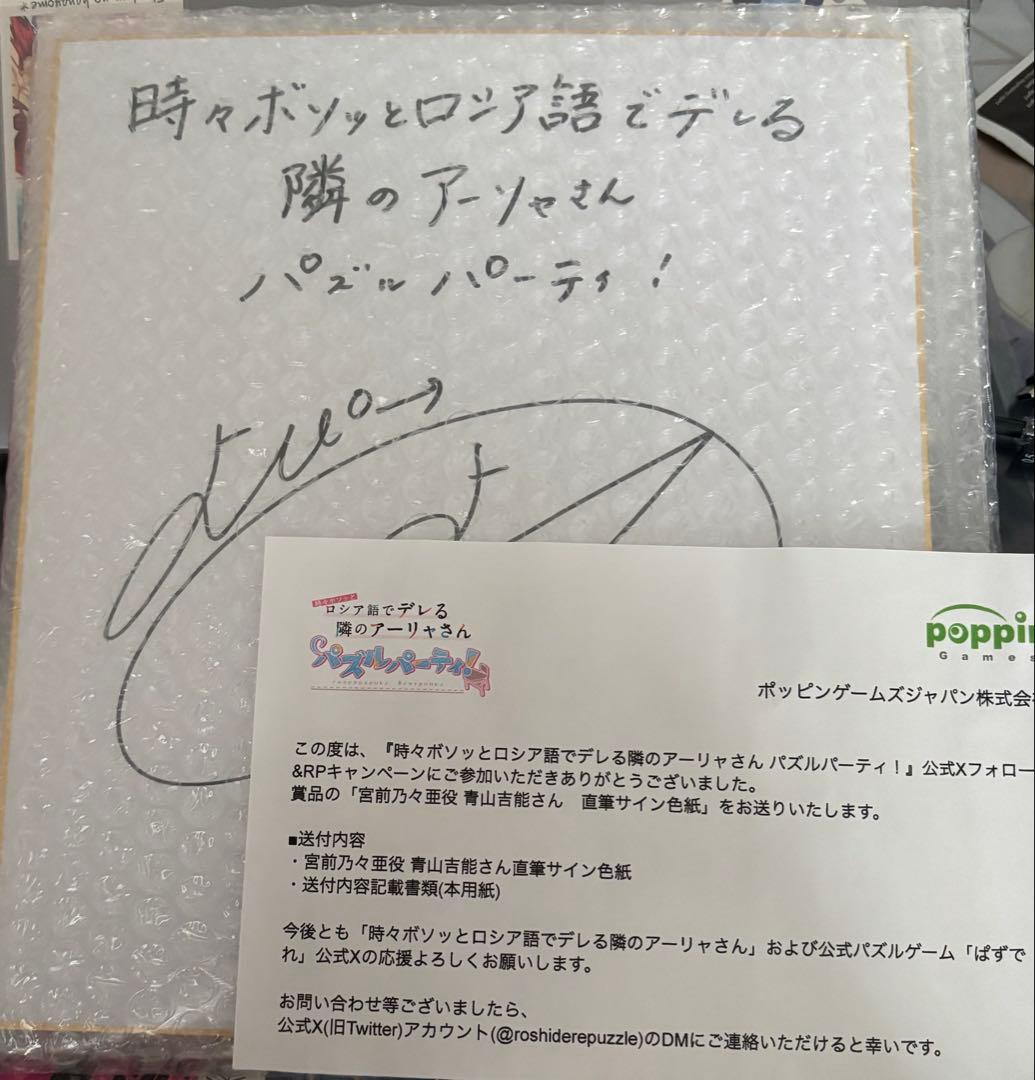 時々ボソッとロシア語でデレる
隣のアーリャさん
パズルパーティ!
時々ボソッと
ロシア語でデレる
隣のアーリャさん
パズルパーティ!
poppin
Games
ポッピンゲームズジャパン株式会
この度は、『時々ボソッとロシア語でデレる隣のアーリャさん パズルパーティ!』公式Xフォロー
&RPキャンペーンにご参加いただきありがとうございました。
賞品の「宮前乃々亜役 青山吉能さん 直筆サイン色紙」をお送りいたします。
■送付内容
・宮前乃々亜役 青山吉能さん直筆サイン色紙
・送付内容記載書類(本用紙)
今後とも「時々ボソッとロシア語でデレる隣のアーリャさん」および公式パズルゲーム「ぱずで
れ」公式Xの応援よろしくお願いします。
お問い合わせ等ございましたら、
公式X(旧Twitter)アカウント(@roshiderepuzzle)のDMにご連絡いただけると幸いです。